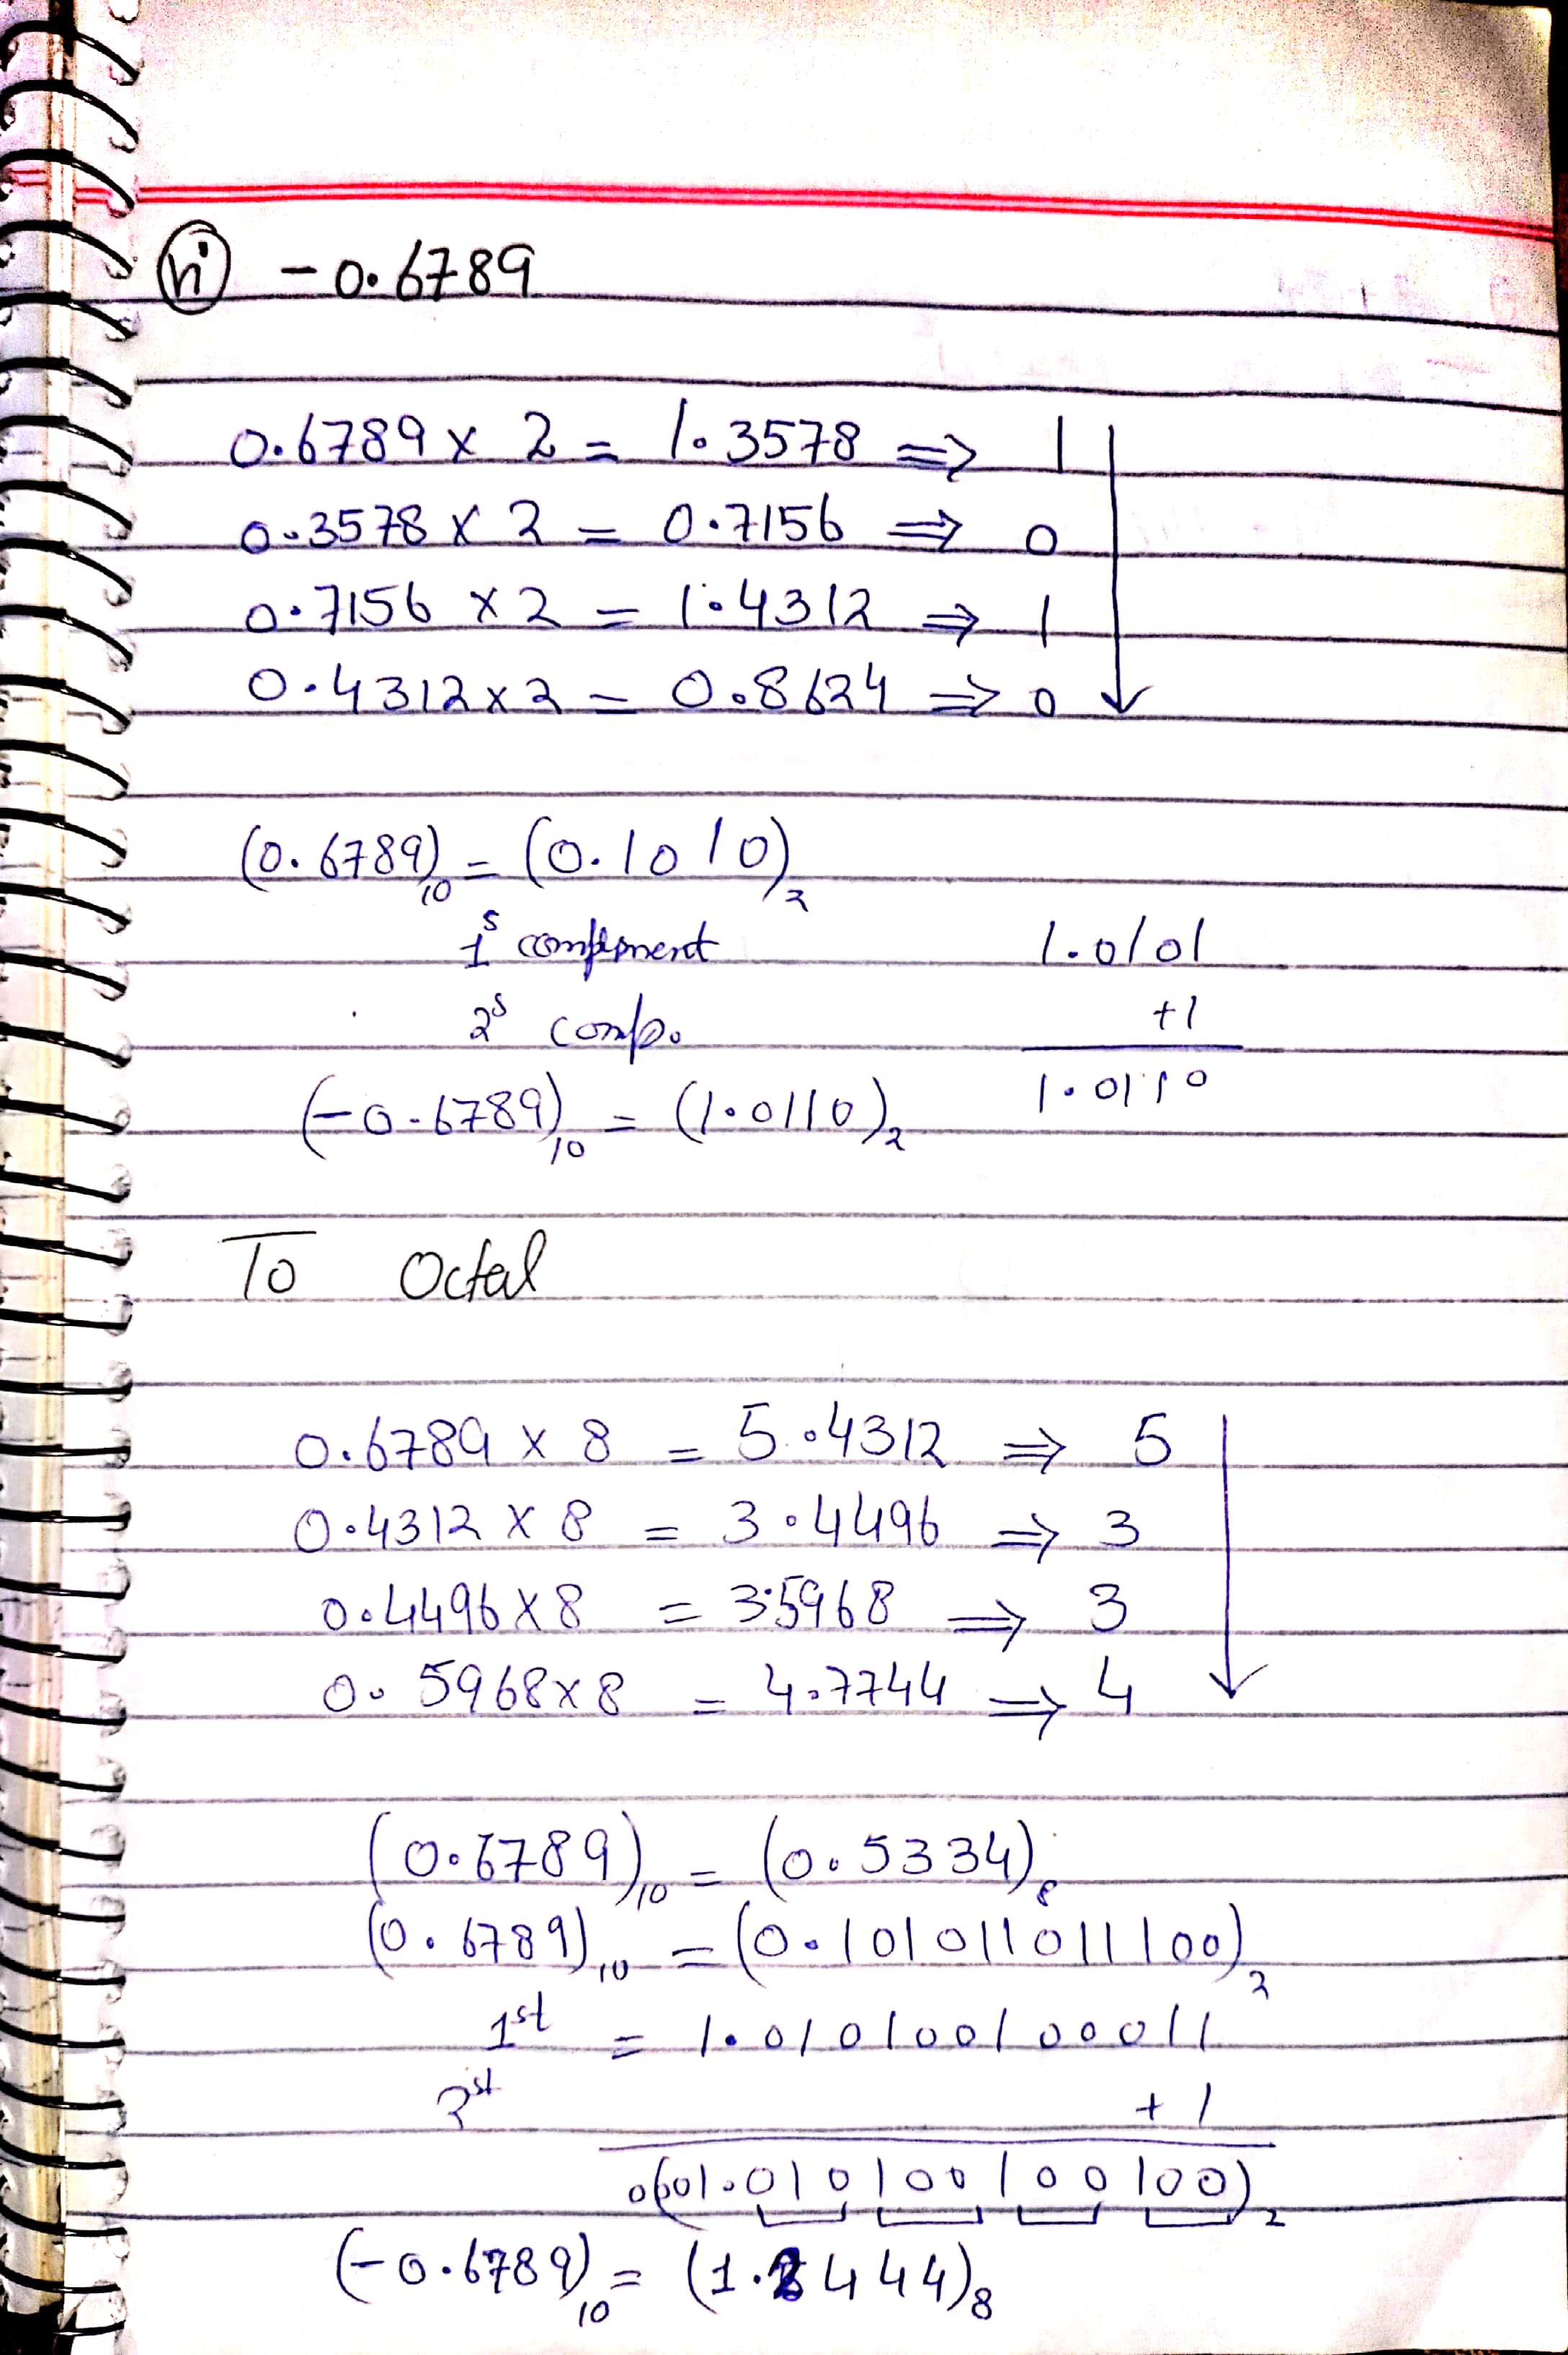 (ii) -0.6789
0.6789 x 2 = 1.3578 => 1
0.3578 x 2 = 0.7156 => 0
0.7156 x 2 = 1.4312 => 1
0.4312 x 2 = 0.8624 => 0
(0.6789)₁₀ = (0.1010)₂
1ˢ compement 1.0101
2ˢ comp. +1
1.0110
(-0.6789)₁₀ = (1.0110)₂
To Octal
0.6789 x 8 = 5.4312 => 5
0.4312 x 8 = 3.4496 => 3
0.4496 x 8 = 3.5968 => 3
0.5968 x 8 = 4.7744 => 4
(0.6789)₁₀ = (0.5334)₈
(0.6789)₁₀ = (0.101011011100)₂
1ˢᵗ = 1.010100100011
2ˢᵗ + 1
(001.010100100100)₂
(-0.6789)₁₀ = (1.2444)₈